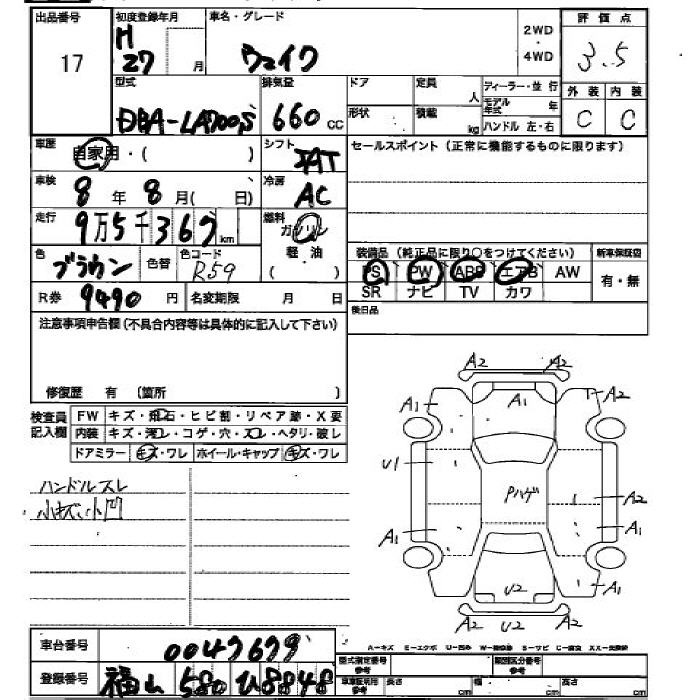 出品番号
17
初度登録年月
H
27 月
車名・グレード
ウェイク
2WD
・
4WD
評価点
3.5
型式
DBA-LA700S
排気量
660 cc
ドア
形状
定員
人
積載
kg
ディーラー・並行
モデル年式 年
ハンドル 左・右
外装
C
内装
C
車歴
自家用・( )
シフト
IAT
セールスポイント(正常に機能するものに限ります)
車検
8年8月( 日)
冷房
AC
走行
9万5千369km
燃料
ガソリン
軽油
( )
色
ブラウン
色替
色コード
R59
装備品(純正品に限り○をつけてください)
PS PW ABS エアB AW
SR ナビ TV カワ
新車保証書
有・無
R券 9490 円
名変期限 月 日
後日品
注意事項申告欄(不具合内容等は具体的に記入して下さい)
修復歴 有 (箇所 )
検査員記入欄
FW キズ・飛石・ヒビ割・リペア跡・X要
内装 キズ・汚レ・コゲ・穴・スレ・ヘタリ・破レ
ドアミラー キズ・ワレ ホイール・キャップ キズ・ワレ
ハンドルスレ
小キズ小凹
A2 A2
A1 A1 A2
U1 Pハゲ A2
A1 A1
A1
U2
A2 U2 A2
A-キズ E-エクボ U-凹み W-補修跡 S-サビ C-腐食 XX-交換跡
車台番号 0047679
登録番号 福山 580 ひ 8848
型式指定番号
参考
類別区分番号
参考
車庫証明用
参考
長さ cm
幅 cm
高さ cm